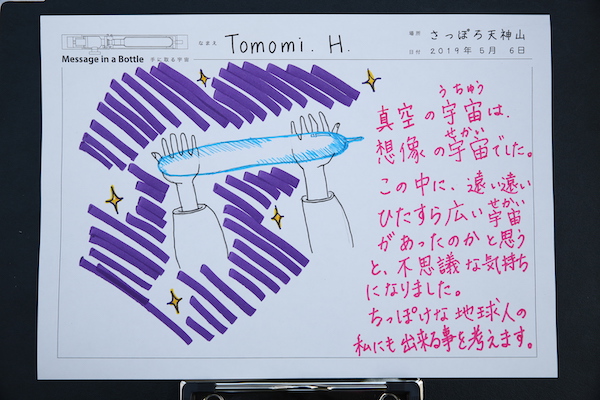 なまえ Tomomi. H.
場所 さっぽろ天神山
Message in a Bottle 手に取る宇宙
日付 2019年 5月 6日
うちゅう
真空の宇宙は、
せかい
想像の宇宙でした。
この中に、遠い遠い
せかい
ひたすら広い宇宙
があったのかと思う
と、不思議な気持ち
になりました。
ちっぽけな地球人の
私にも出来る事を考えます。